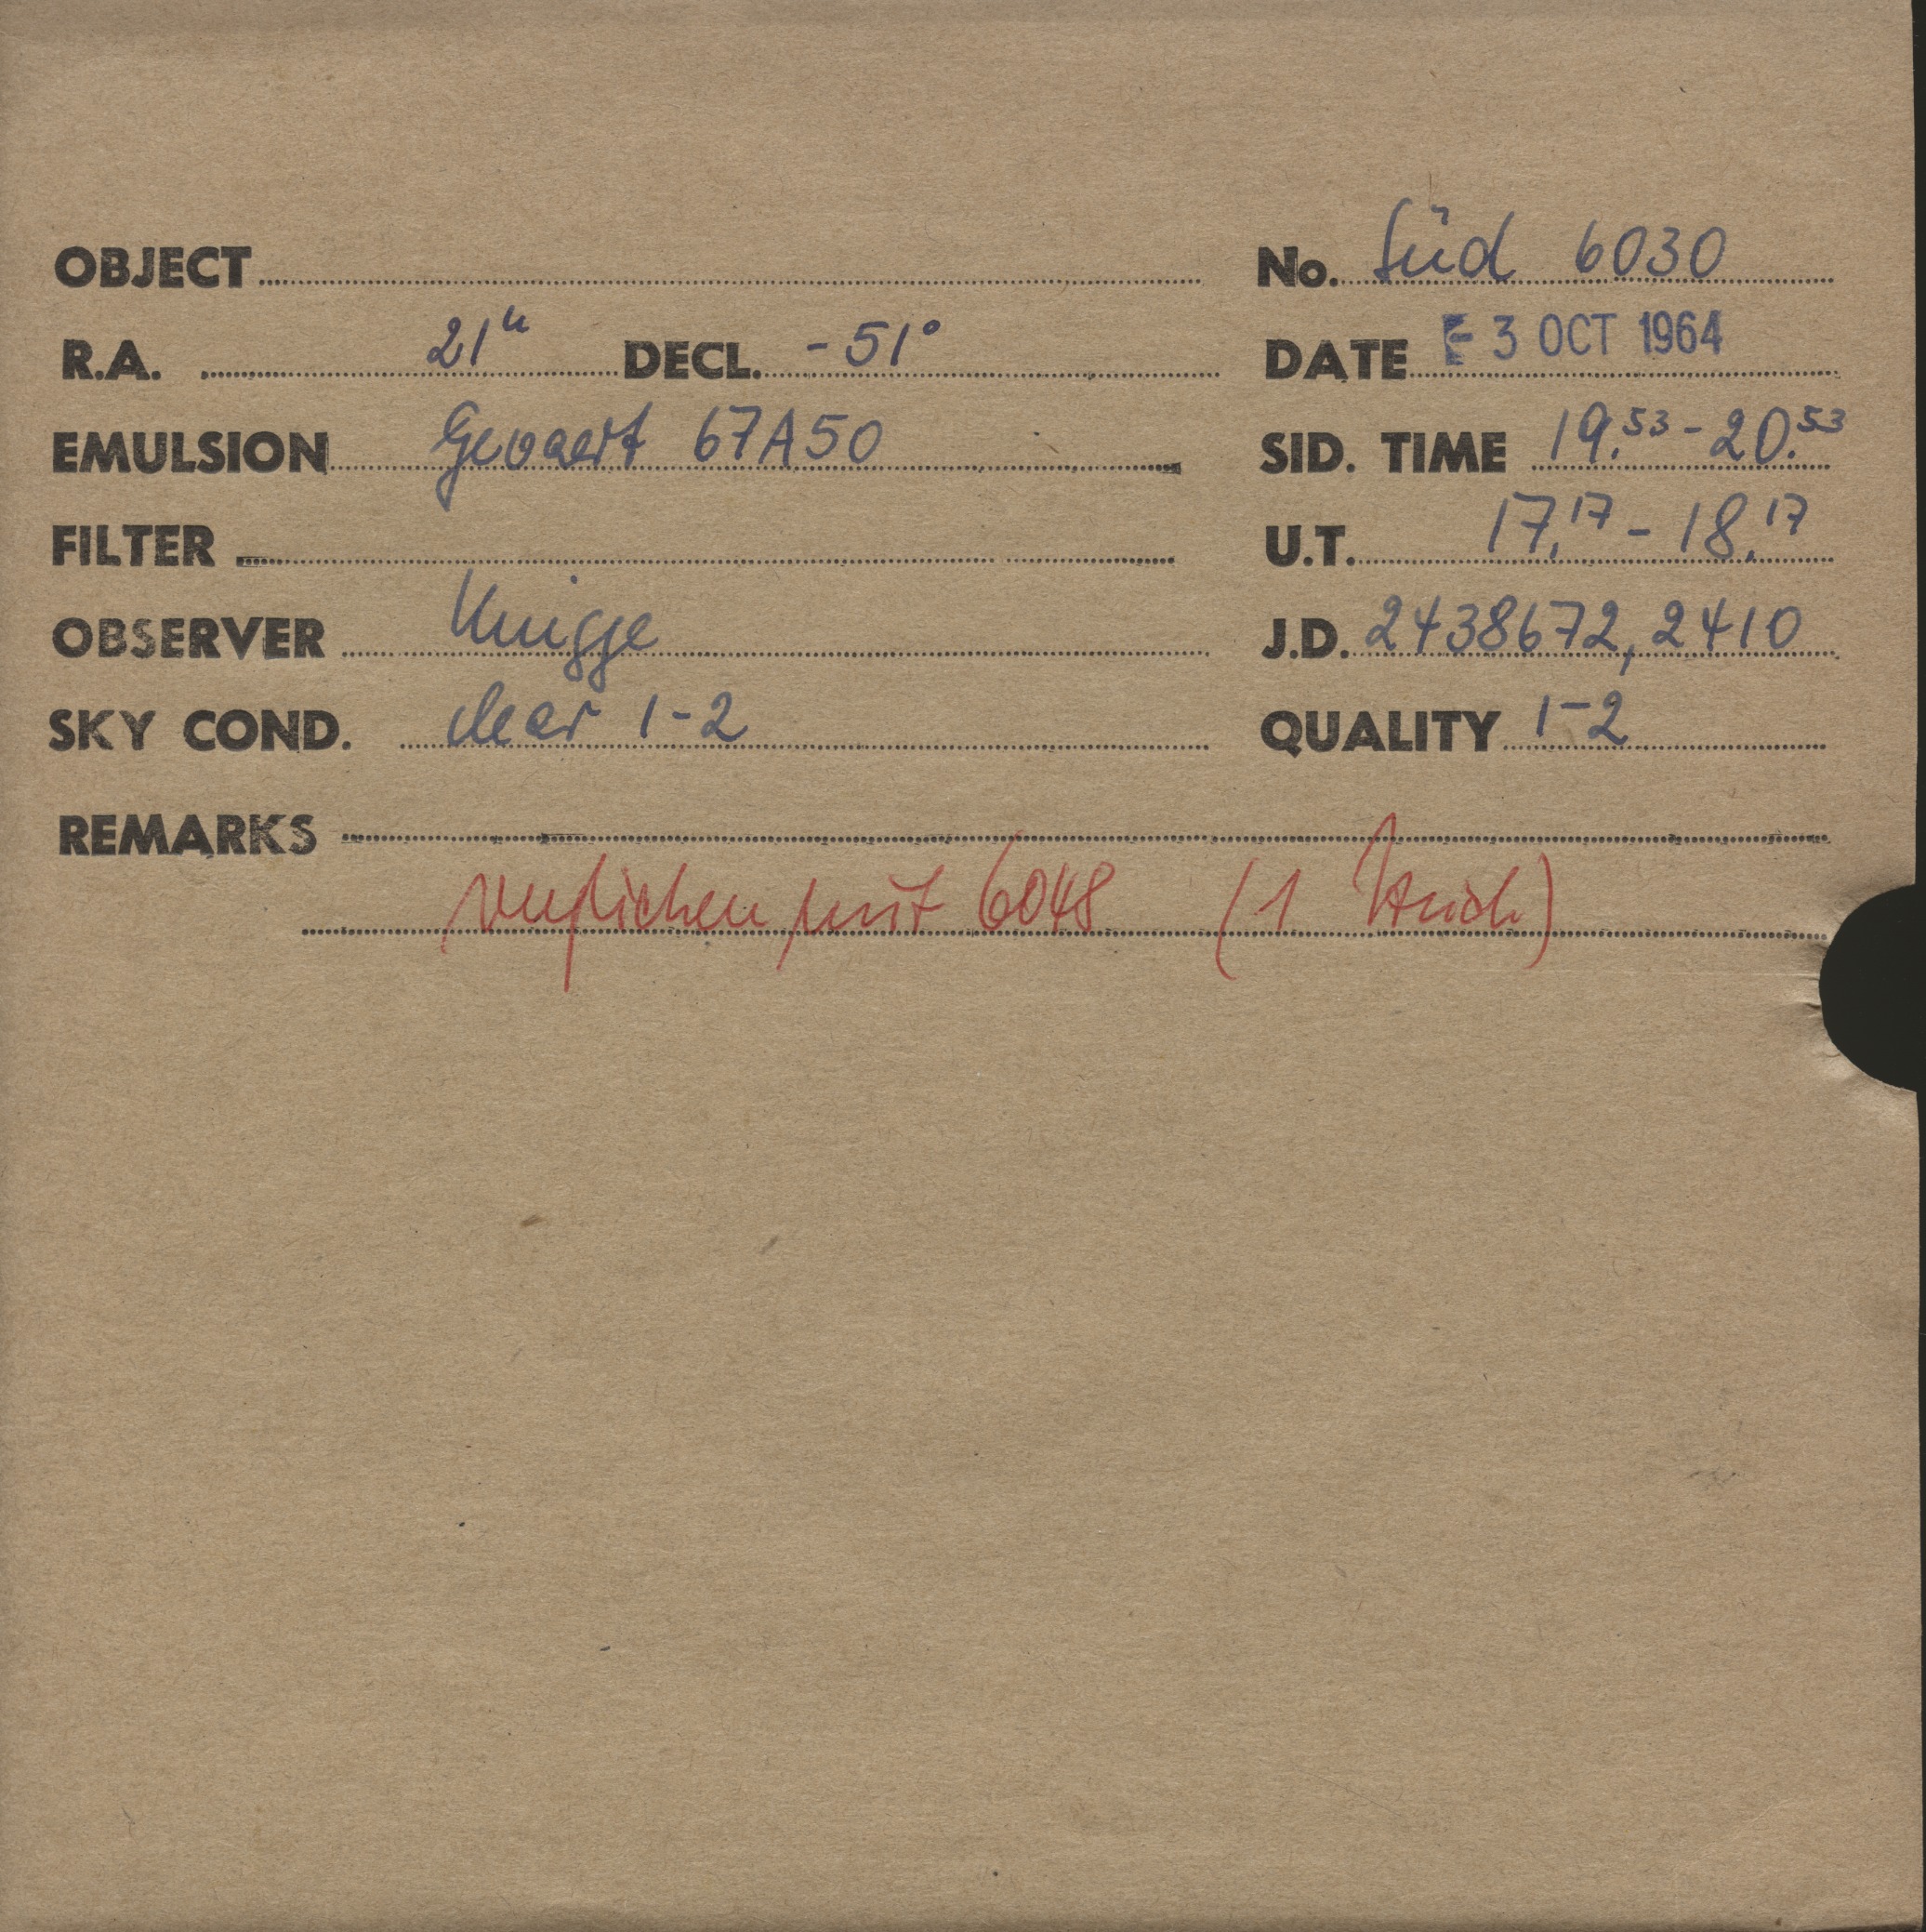 OBJECT No. Süd 6030
R.A. 21h DECL. -51° DATE - 3 OCT 1964
EMULSION Gevaert 67A50 SID. TIME 19.53 - 20.53
FILTER U.T. 17.17 - 18.17
OBSERVER Knigge J.D. 2438672,2410
SKY COND. clear 1-2 QUALITY 1-2
REMARKS
verglichen mit 6048 (1 Strich)